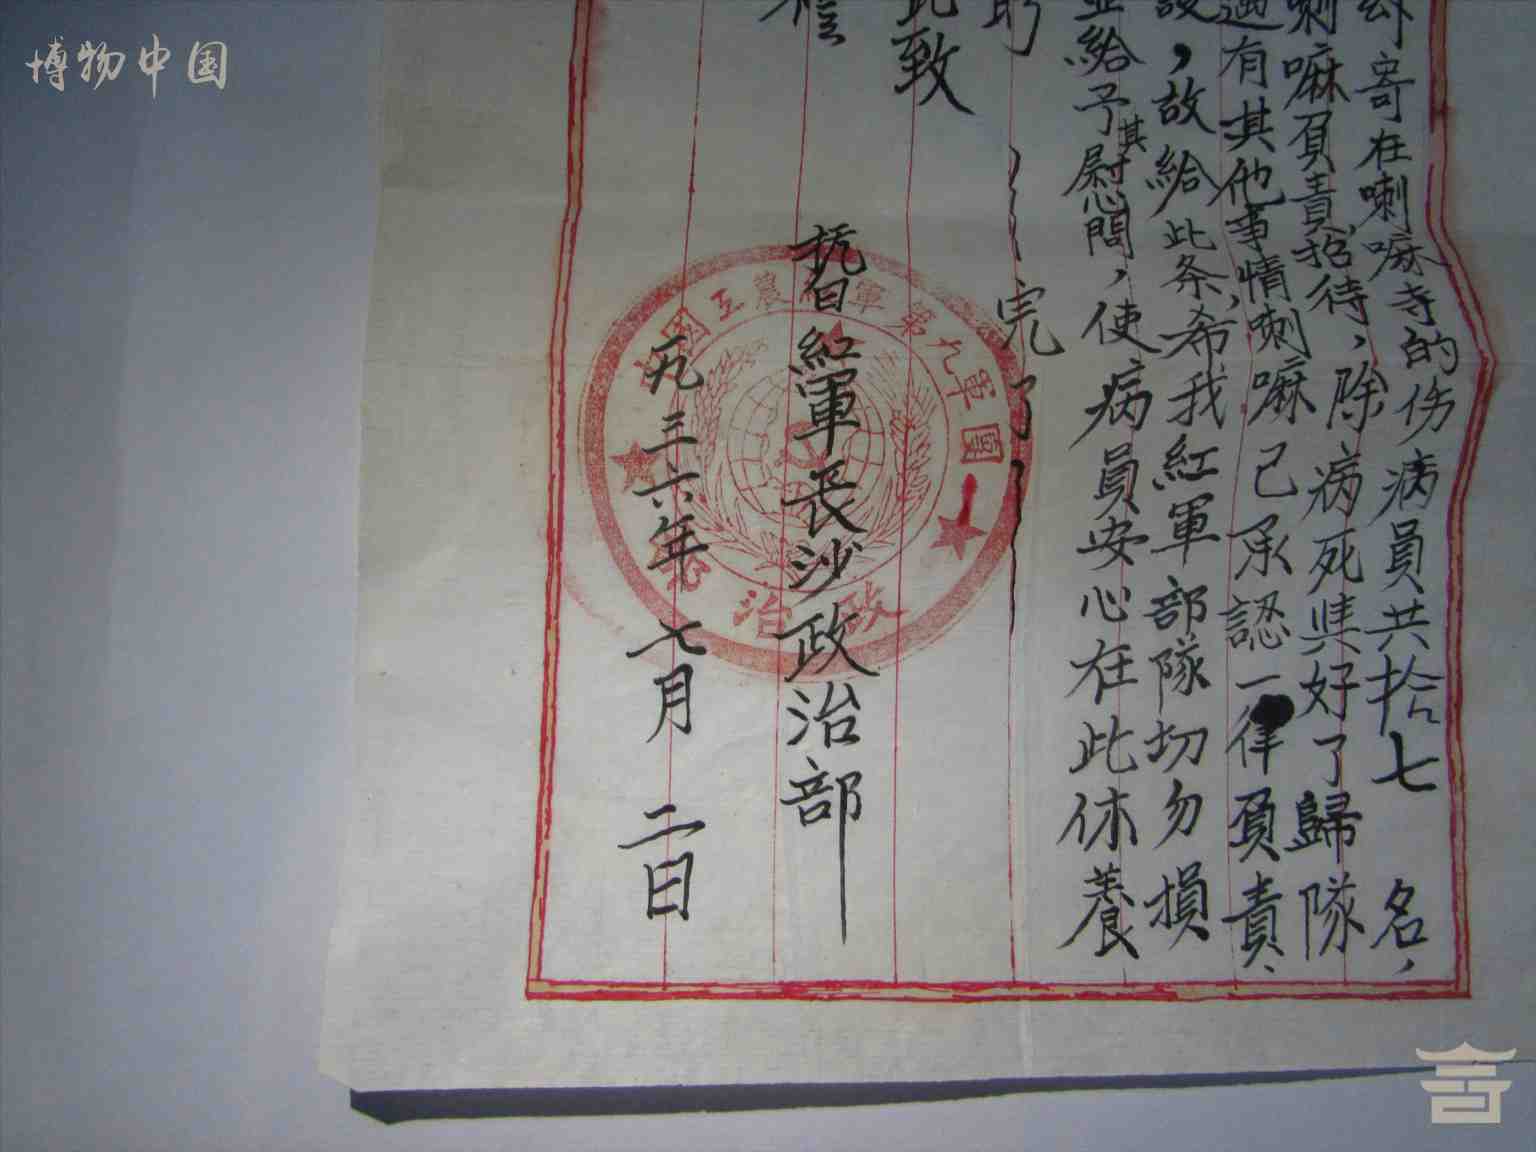 博物中国
寄在喇嘛寺的伤病員共拾七名，
喇嘛負責招待，除病死与好了歸隊
有其他事情，喇嘛已承認一律負責、
，故給此条，希我紅軍部隊切勿損
並給予其慰問，使病員安心在此休養
完了
此致
抗日紅軍長沙政治部
一九三六年七月二日
國工農紅軍第九軍團
政治